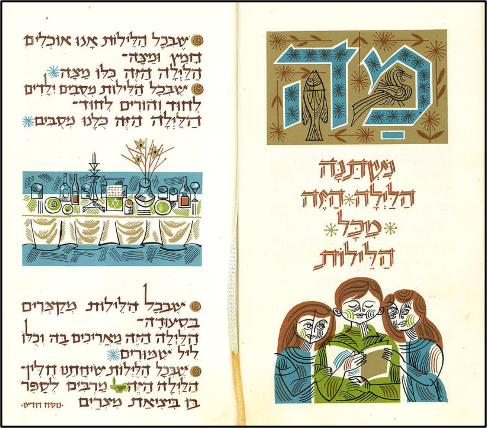 מה
נשתנה
הלילה הזה
מכל
הלילות
שבכל הלילות אנו אוכלים
חמץ ומצה-
הלילה הזה כלו מצה
שבכל הלילות מסבים ילדים
לחוד והורים לחוד-
הלילה הזה כלנו מסבים
שבכל הלילות מקצרים
בסעודה-
הלילה הזה מאריכים בה וכלו
ליל שמורים
שבכל הלילות שיחתנו חלין-
הלילה הזה מרבים לספר
בו ביציאת מצרים
נוסח